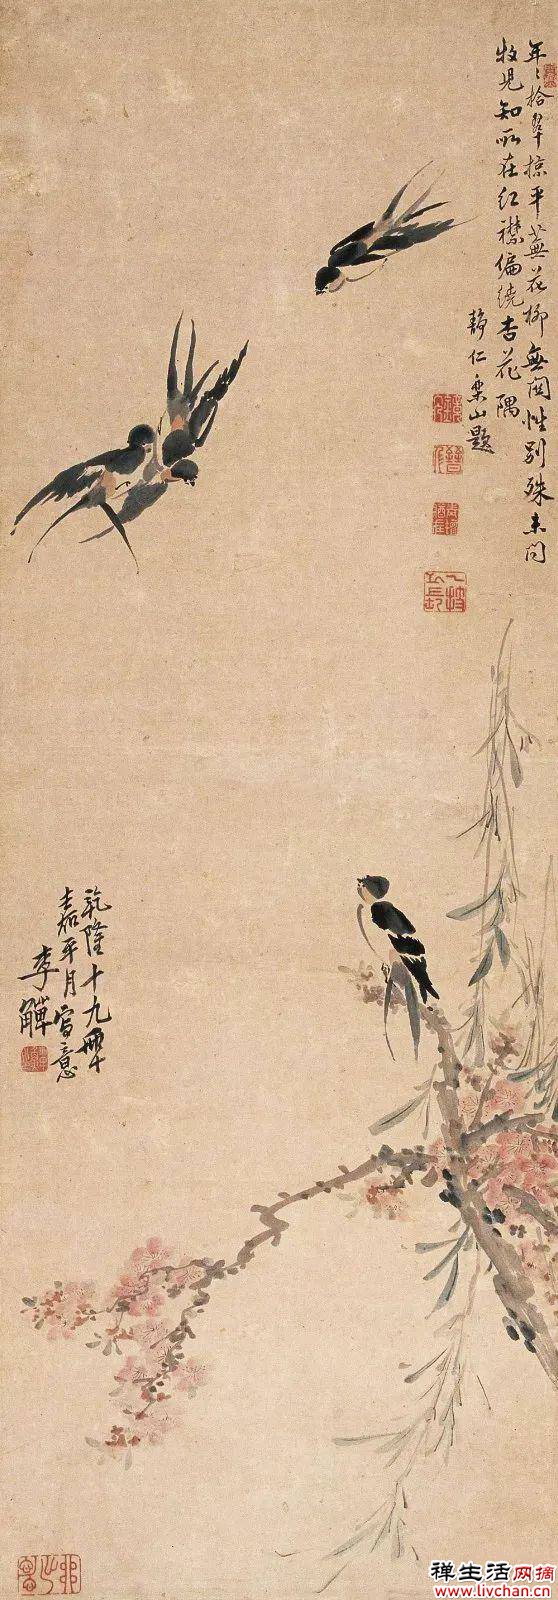 年〻拾翠掠平蕪花柳無関性別殊未問
牧児知所在紅襟偏繞杏花隅
静仁樂山題
乾隆十九年
嘉平月寫意
李鱓
禅生活网摘
www.livchan.cn